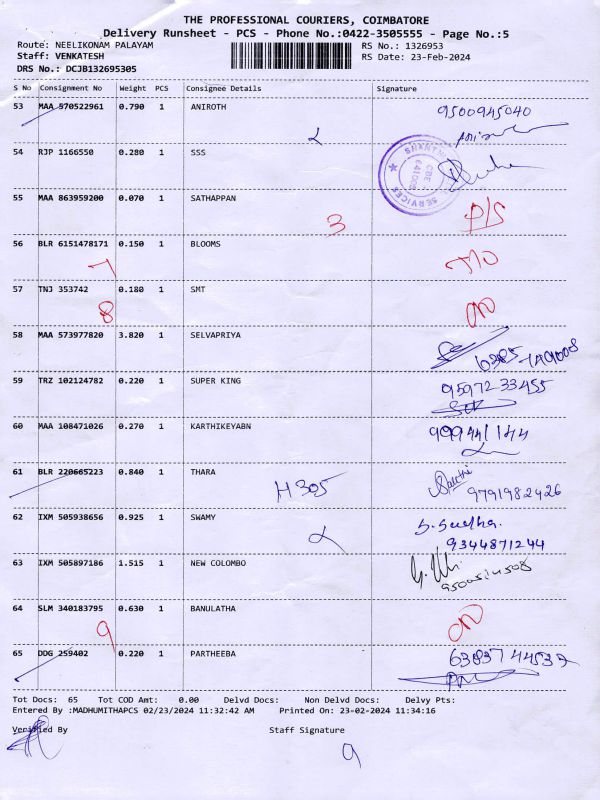 THE PROFESSIONAL COURIERS, COIMBATORE
Delivery Runsheet - PCS - Phone No.:0422-3505555 - Page No.:5
Route: NEELIKONAM PALAYAM RS No.: 1326953
Staff: VENKATESH RS Date: 23-Feb-2024
DRS No.: DCJB132695305
S No Consignment No Weight PCS Consignee Details Signature
53 MAA 570522961 0.790 1 ANIROTH 9500945040
54 RJP 1166550 0.280 1 SSS
55 MAA 863959200 0.070 1 SATHAPPAN P/S
3
56 BLR 6151478171 0.150 1 BLOOMS
7
57 TNJ 353742 0.180 1 SMT
8
58 MAA 573977820 3.820 1 SELVAPRIYA
59 TRZ 102124782 0.220 1 SUPER KING 9597233455
60 MAA 108471026 0.270 1 KARTHIKEYABN
61 BLR 220665223 0.840 1 THARA H 305 9791982426
62 IXM 505938656 0.925 1 SWAMY S. Sudha.
9344871244
63 IXM 505897186 1.515 1 NEW COLOMBO
64 SLM 340183795 0.630 1 BANULATHA
9
65 DDG 259402 0.220 1 PARTHEEBA 63837 44532
Tot Docs: 65 Tot COD Amt: 0.00 Delvd Docs: Non Delvd Docs: Delvy Pts:
Entered By :MADHUMITHAPCS 02/23/2024 11:32:42 AM Printed On: 23-02-2024 11:34:16
Verified By Staff Signature
9